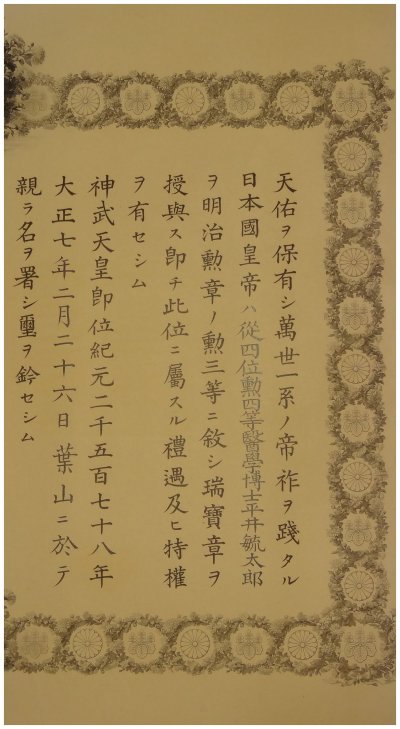 天佑ヲ保有シ萬世一系ノ帝祚ヲ踐タル
日本國皇帝ハ從四位勲四等醫學博士平井毓太郎
ヲ明治勲章ノ勲三等ニ敘シ瑞寶章ヲ
授與ス卽チ此位ニ屬スル禮遇及ヒ特權
ヲ有セシム
神武天皇卽位紀元二千五百七十八年
大正七年二月二十六日葉山ニ於テ
親ラ名ヲ署シ璽ヲ鈐セシム